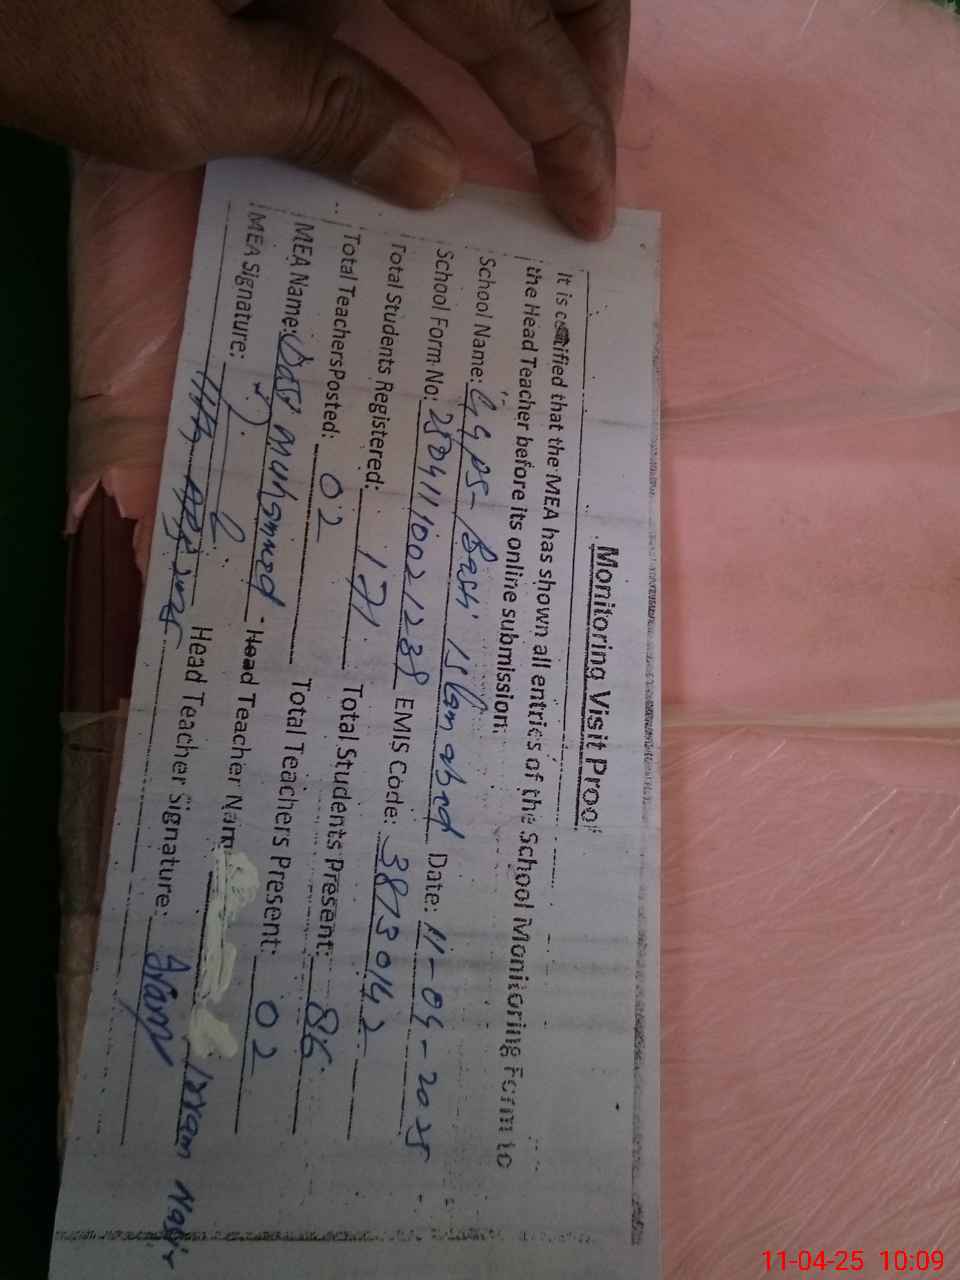 Monitoring Visit Proof
It is certified that the MEA has shown all entries of the School Monitoring Form to
the Head Teacher before its online submission.
School Name: GGPS- Basti Islamabad Date: 11-04-2025
School Form No: 25041110021238 EMIS Code: 38130142
Total Students Registered: 171 Total Students Present: 86
Total Teachers Posted: 02 Total Teachers Present: 02
MEA Name: Muhammad Head Teacher Nam Irram Nasir
MEA Signature: Head Teacher Signature: Iram
11-04-25 10:09